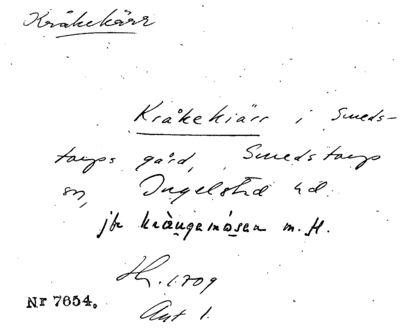 Kråkekärr
Kråkekiärr i Smeds-
torps gård, Smedstorps
sn, Ingelstad hd
jfr kràngamósen m.fl.
Hl. 1709
Avt 1.
Nr 7654.